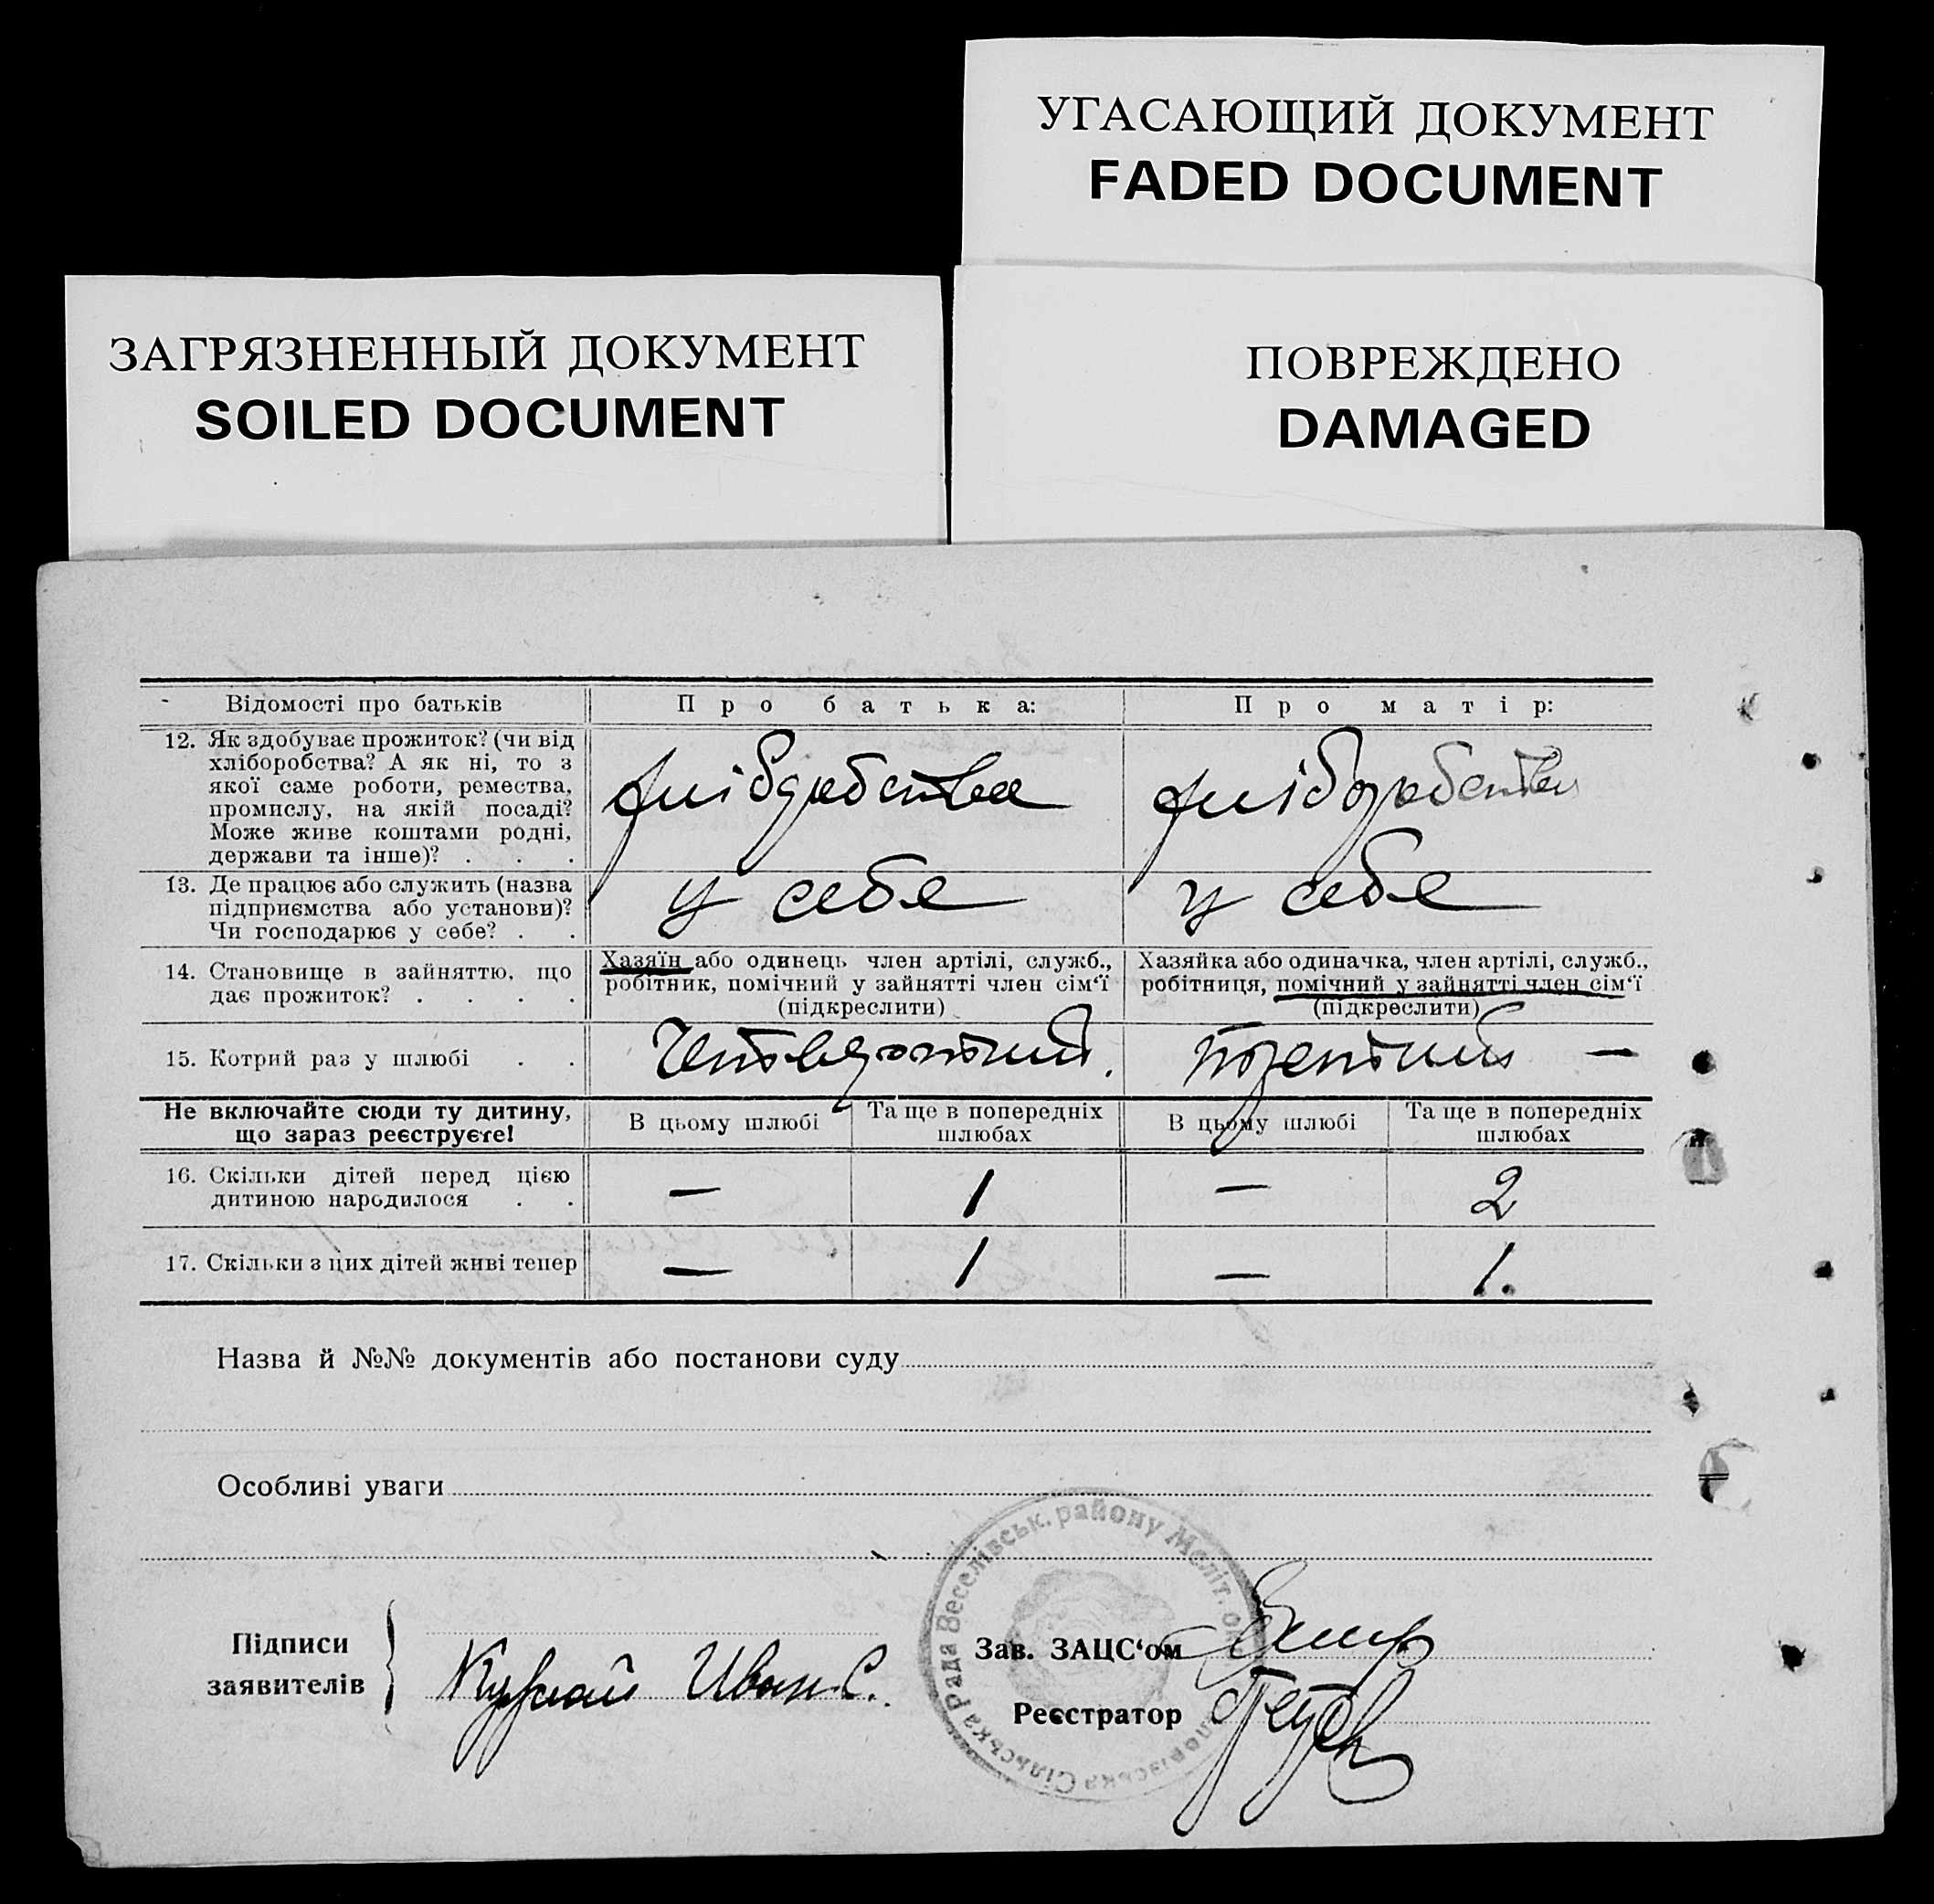 УГАСАЮЩИЙ ДОКУМЕНТ
FADED DOCUMENT
ЗАГРЯЗНЕННЫЙ ДОКУМЕНТ
SOILED DOCUMENT
ПОВРЕЖДЕНО
DAMAGED
Відомості про батьків
Про батька:
Про матір:
12. Як здобуває прожиток? (чи від
хліборобства? А як ні, то з
якої саме роботи, ремества,
промислу, на якій посаді?
Може живе коштами родні,
держави та інше)? . . .
хліборобства
хліборобства
13. Де працює або служить (назва
підприємства або установи)?
Чи господарює у себе? . .
у себе
у себе
14. Становище в зайняттю, що
дає прожиток? . . . .
Хазяїн або одинець член артілі, служб.,
робітник, помічний у зайнятті член сім‘ї
(підкреслити)
Хазяйка або одиначка, член артілі, служб.,
робітниця, помічний у зайнятті член сім‘ї
(підкреслити)
15. Котрий раз у шлюбі . .
Не включайте сюди ту дитину,
що зараз реєструєте!
В цьому шлюбі
Та ще в попередніх
шлюбах
В цьому шлюбі
Та ще в попередніх
шлюбах
16. Скільки дітей перед цією
дитиною народилося . .
— 1 — 2
17. Скільки з цих дітей живі тепер
— 1 — 1.
Назва й №№ документів або постанови суду
Особливі уваги
Підписи
заявителів
Иван С.
Зав. ЗАЦС‘ом
Реєстратор
Сільська Рада Веселівськ. району Меліт. ок